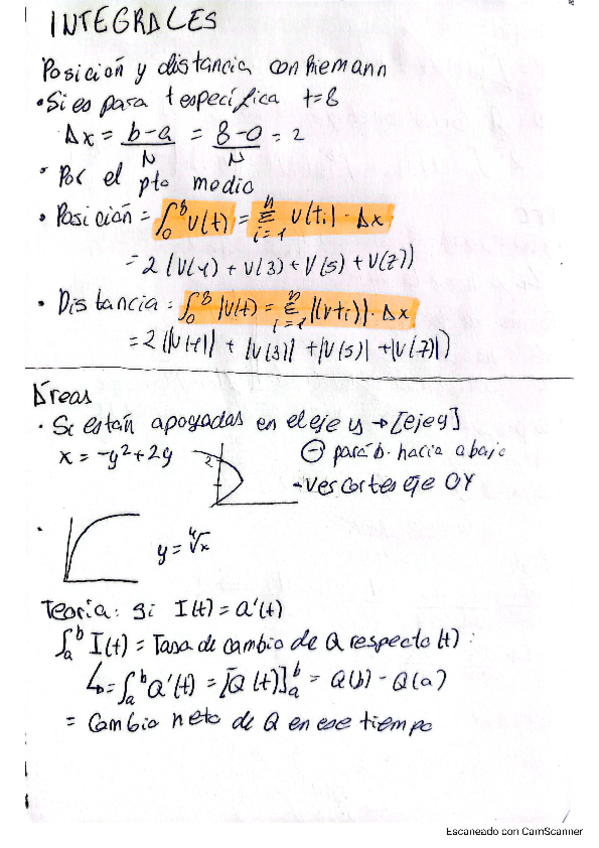 INTEGRALES
Posición y distancia con Riemann
• Si es para t específica t=8
Δx = b-a/N = 8-0/N = 2
• Por el pto medio
• Posición = ∫₀⁸ v(t) = Σᵢ₌₁ⁿ v(tᵢ) · Δx
= 2 (v(1) + v(3) + v(5) + v(7))
• Distancia: ∫₀⁸ |v(t) = Σᵢ₌₁ⁿ |(vtᵢ)| · Δx
= 2 (|v(1)| + |v(3)| + |v(5)| + |v(7)|)
Áreas
• Si están apoyadas en el eje y → [eje y]
x = -y² + 2y
2
⊖ paráb. hacia abajo
→ ves cortes eje OY
y = ⁴√x
Teoría: si I(t) = Q'(t)
∫ₐᵇ I(t) = Tasa de cambio de Q respecto (t):
↳ = ∫ₐᵇ Q'(t) = [Q(t)]ₐᵇ = Q(b) - Q(a)
= Cambio neto de Q en ese tiempo
Escaneado con CamScanner